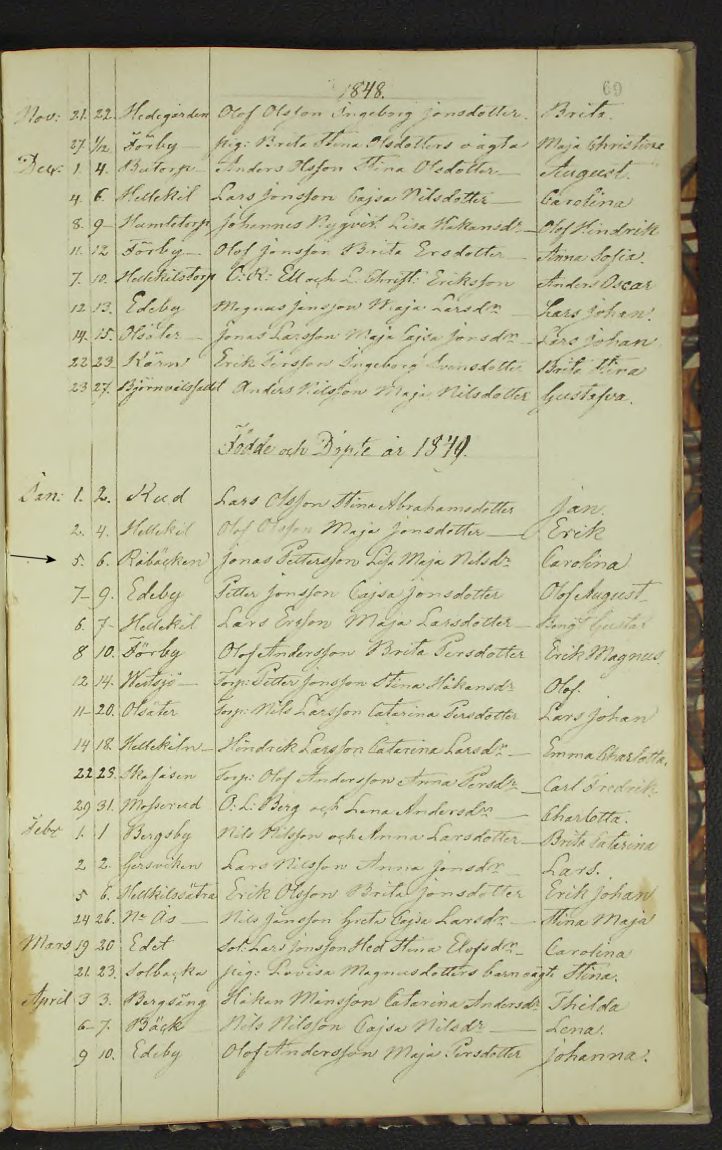 1848.
69
Nov: 21. 22. Hedegården Olof Olsson Ingeborg Jonsdotter. Brita.
27 1/12 Förby pig: Brita Stina Olsdotters oägta Maja Christine
Dec: 1. 4. Anders Olsson Stina Olsdotter August.
4. 6. Hellekil Lars Jonsson Cajsa Nilsdotter Carolina
8. 9 Humletorp Johannes Nygvist Lisa Håkansdr Olof Hindrik
11. 12 Förby Olof Jonsson Brita Ersdotter Anna Sofia.
7. 10. Hellekilstorp Eriksson Anders Oscar
12. 13. Edeby Magnus Jansson Maja Larsdr Lars Johan.
14. 15. Olsäter Jonas Larsson Maja Cajsa Jonsdr Lars Johan
22 23. Körn Erik Persson Ingeborg Svensdotter Brita Stina
23 27. Anders Nilsson Maja Nilsdotter Gustafva.
Födde och Döpte år 1849.
Jan: 1. 2. Rud Lars Olsson Stina Abrahamsdotter Jan.
2. 4. Hellekil Olof Olsson Maja Jonsdotter Erik
5. 6. Råbäcken Jonas Pettersson Lisa Maja Nilsdr Carolina
7 9. Edeby Petter Jonsson Cajsa Jonsdotter Olof August
6. 7 Hellekil Lars Ersson Maja Larsdotter Bengt Gustaf
8 10. Förby Olof Andersson Brita Persdotter Erik Magnus.
12 14. Westsjö Torp: Petter Jonsson Stina Håkansdr Olof.
11 20. Olsäter Torp: Nils Larsson Catarina Persdotter Lars Johan
14 18. Hellekiln Hindrik Larsson Catarina Larsdr Emma Charlotta.
22 23. Skafåsen Torp: Olof Andersson Anna Persdr Carl Fredrik
29 31. Mosserud O: L: Berg och Lena Andersdr Charlotta.
Febr 1. 1 Bergsby Nils Nilsson och Anna Larsdotter Brita Catarina
2 2. Gersviken Lars Nilsson Anna Jonsdr Lars.
5 6. Hellkilssätra Erik Olsson Brita Jonsdotter Erik Johan
24 26. Nr Ås Nils Jansson Greta Cajsa Larsdr Stina Maja
Mars 19 20 Edet Sol: Lars Jonsson Hed Stina Elofsdr Carolina
21. 23. Solbacka pig: Lovisa Magnusdotters barn oägt Stina.
April 3 3. Bergsäng Håkan Månsson Catarina Andersdr Thilda
6 7. Bäck Nils Nilsson Cajsa Nilsdr Lena.
9 10. Edeby Olof Andersson Maja Persdotter Johanna.